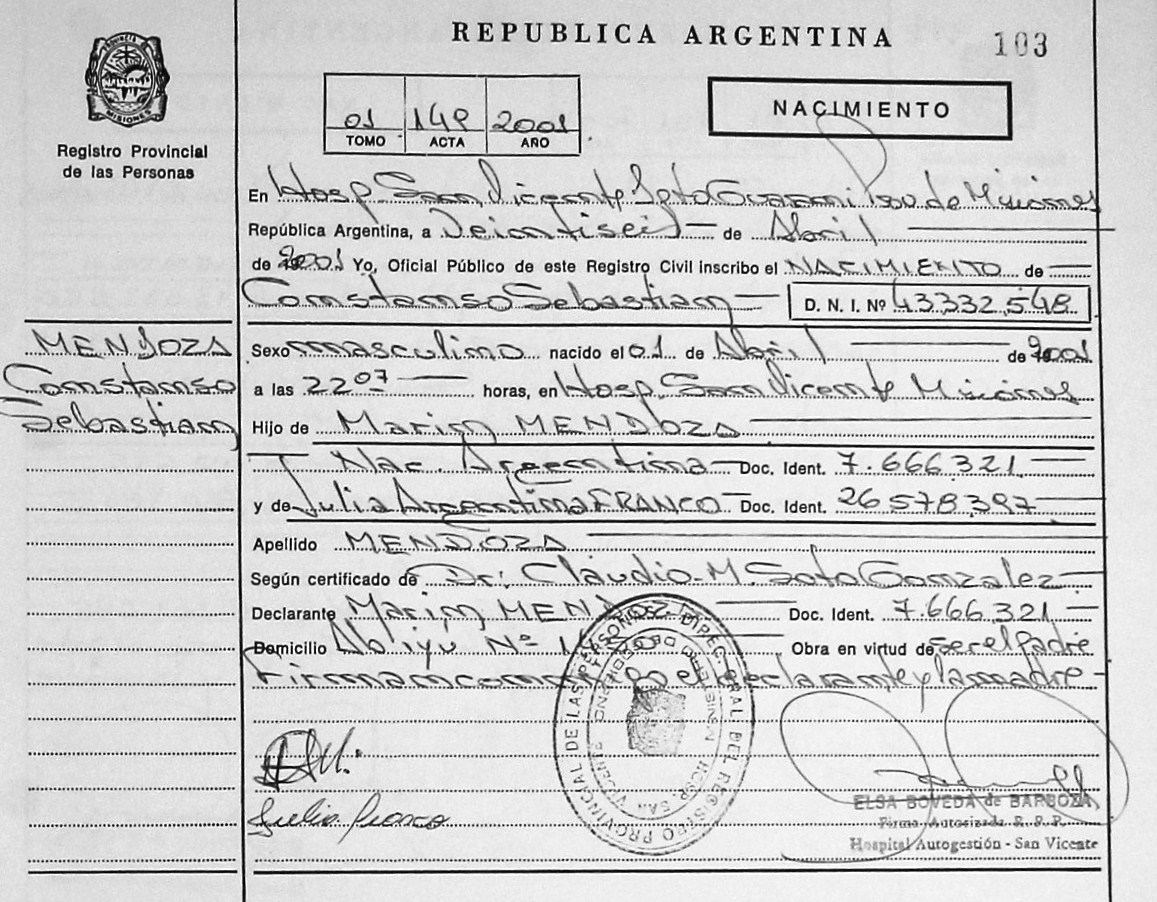 REPUBLICA ARGENTINA
103
PROVINCIA DE MISIONES
Registro Provincial
de las Personas
01 149 2001
TOMO ACTA AÑO
NACIMIENTO
En Hosp. San Vicente Dpto Guaraní Prov. de Misiones
República Argentina, a Veintiseis de Abril
de 2001 Yo, Oficial Público de este Registro Civil inscribo el NACIMIENTO de
Constanso Sebastian D. N. I. Nº 43.332.548
MENDOZA
Constanso
Sebastian
Sexo masculino nacido el 01 de Abril de 2001
a las 22 07 horas, en Hosp. San Vicente Misiones
Hijo de Marin MENDOZA
Nac. Argentina Doc. Ident. 7.666.321
y de Julia Argentina FRANCO Doc. Ident. 26.578.397
Apellido MENDOZA
Según certificado de Dr: Claudio M. Soto Gonzalez
Declarante Marin MENDOZA Doc. Ident. 7.666.321
Domicilio Nº Obra en virtud de ser el Padre
Firman conmigo el declarante y la madre
Julia Franco
DIREC. GRAL. DEL REGISTRO PROVINCIAL DE LAS PERSONAS
MINISTERIO DE GOBIERNO
HOSP. SAN VICENTE
ELSA BOVEDA de BARBOZA
Firma Autorizada R. P. P.
Hospital Autogestión - San Vicente